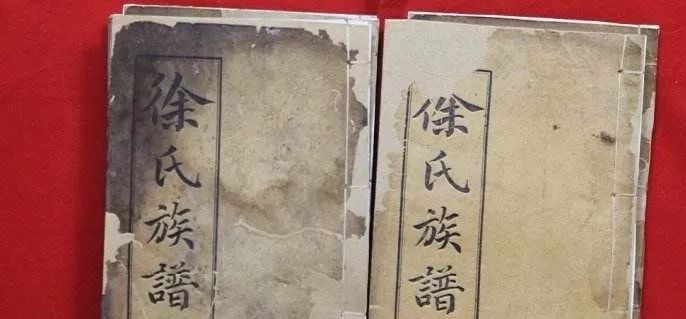 徐氏族譜
俆氏族譜